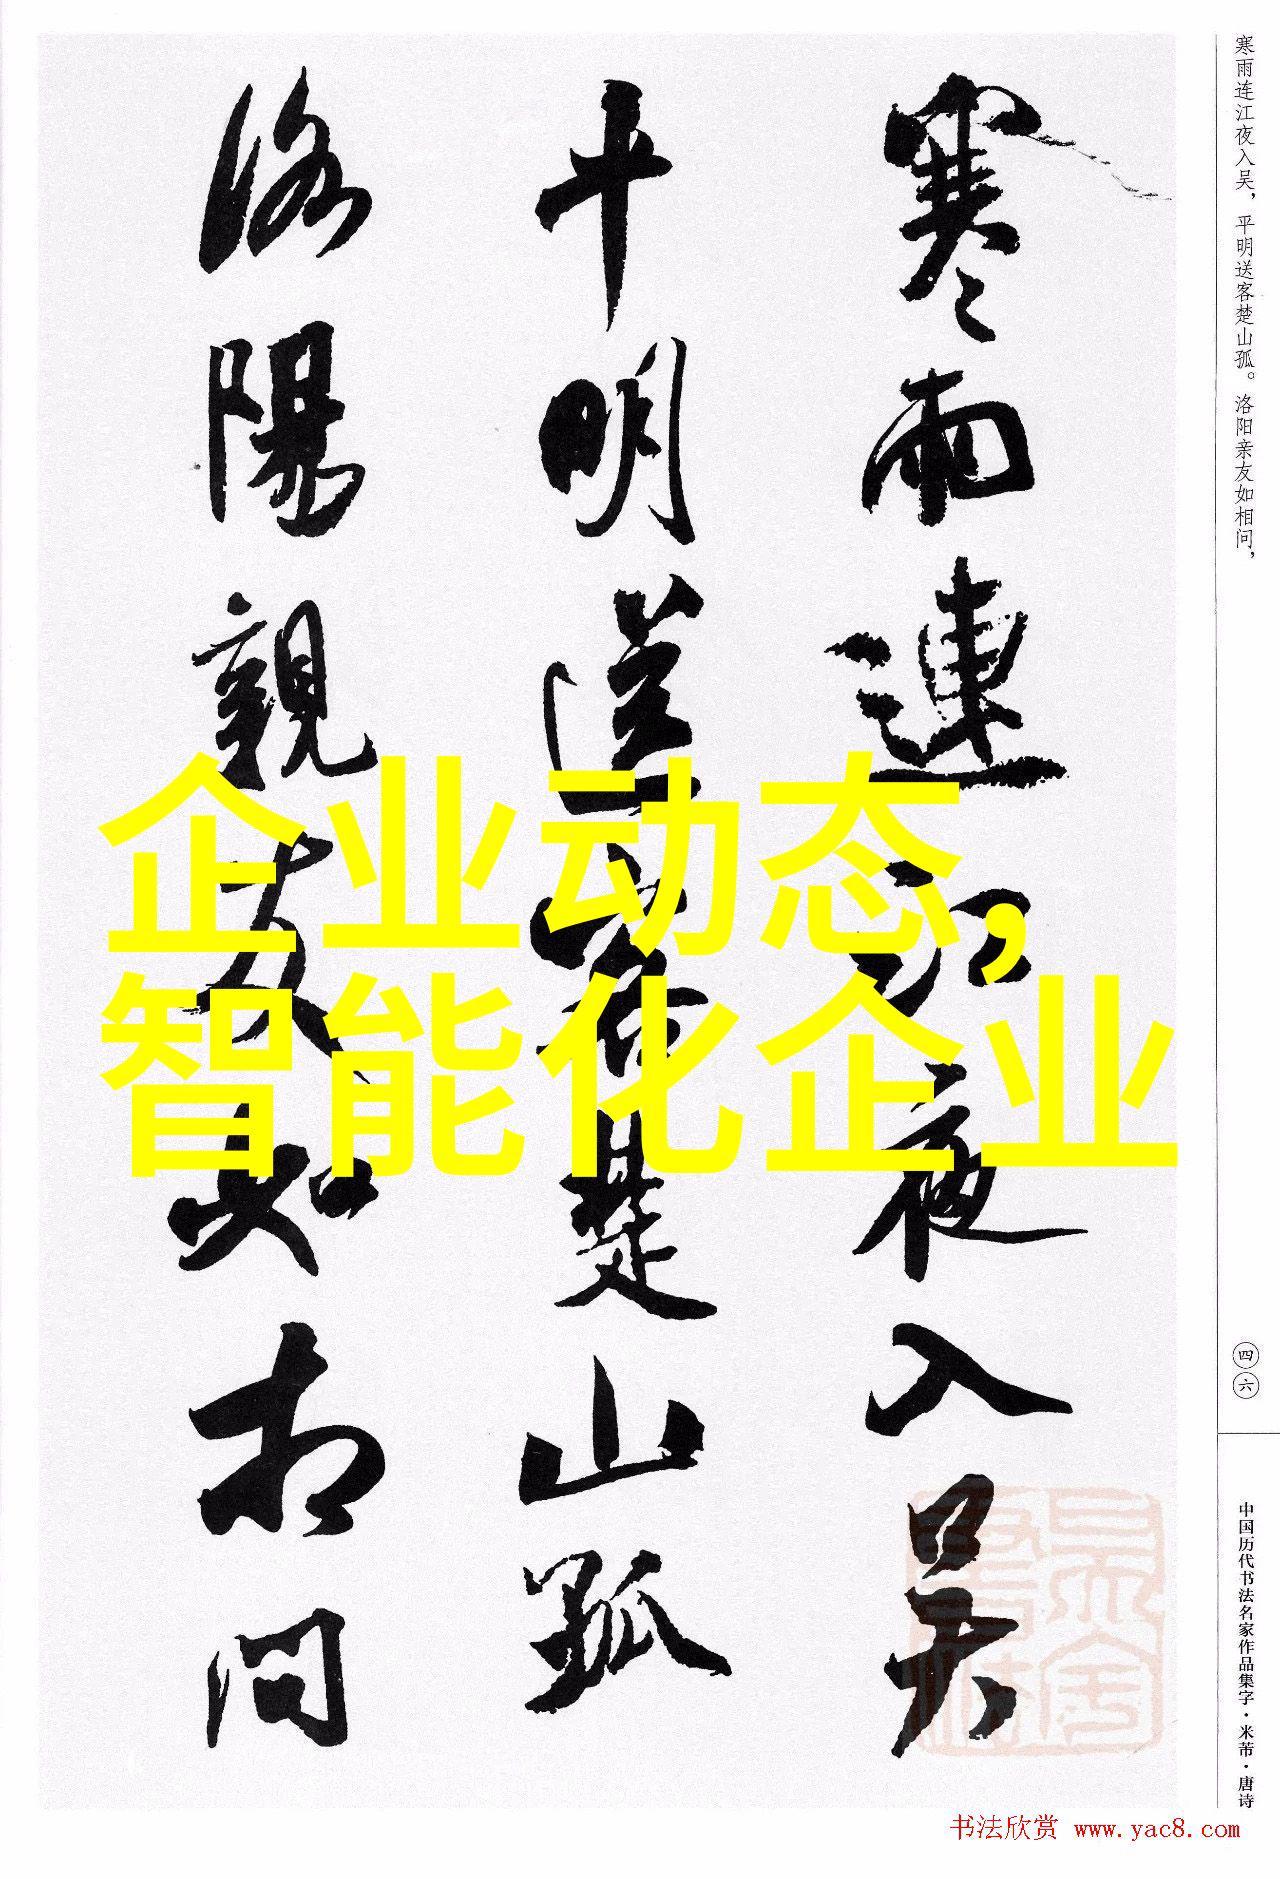 寒雨连江夜入吴，平明送客楚山孤。洛阳亲友如相问，
寒雨連江夜入吴
平明送客楚山孤
洛陽親友如相問
企业动态，
智能化企业
四六
中国历代书法名家作品集字·米芾·唐诗
书法欣赏 www.yac8.com